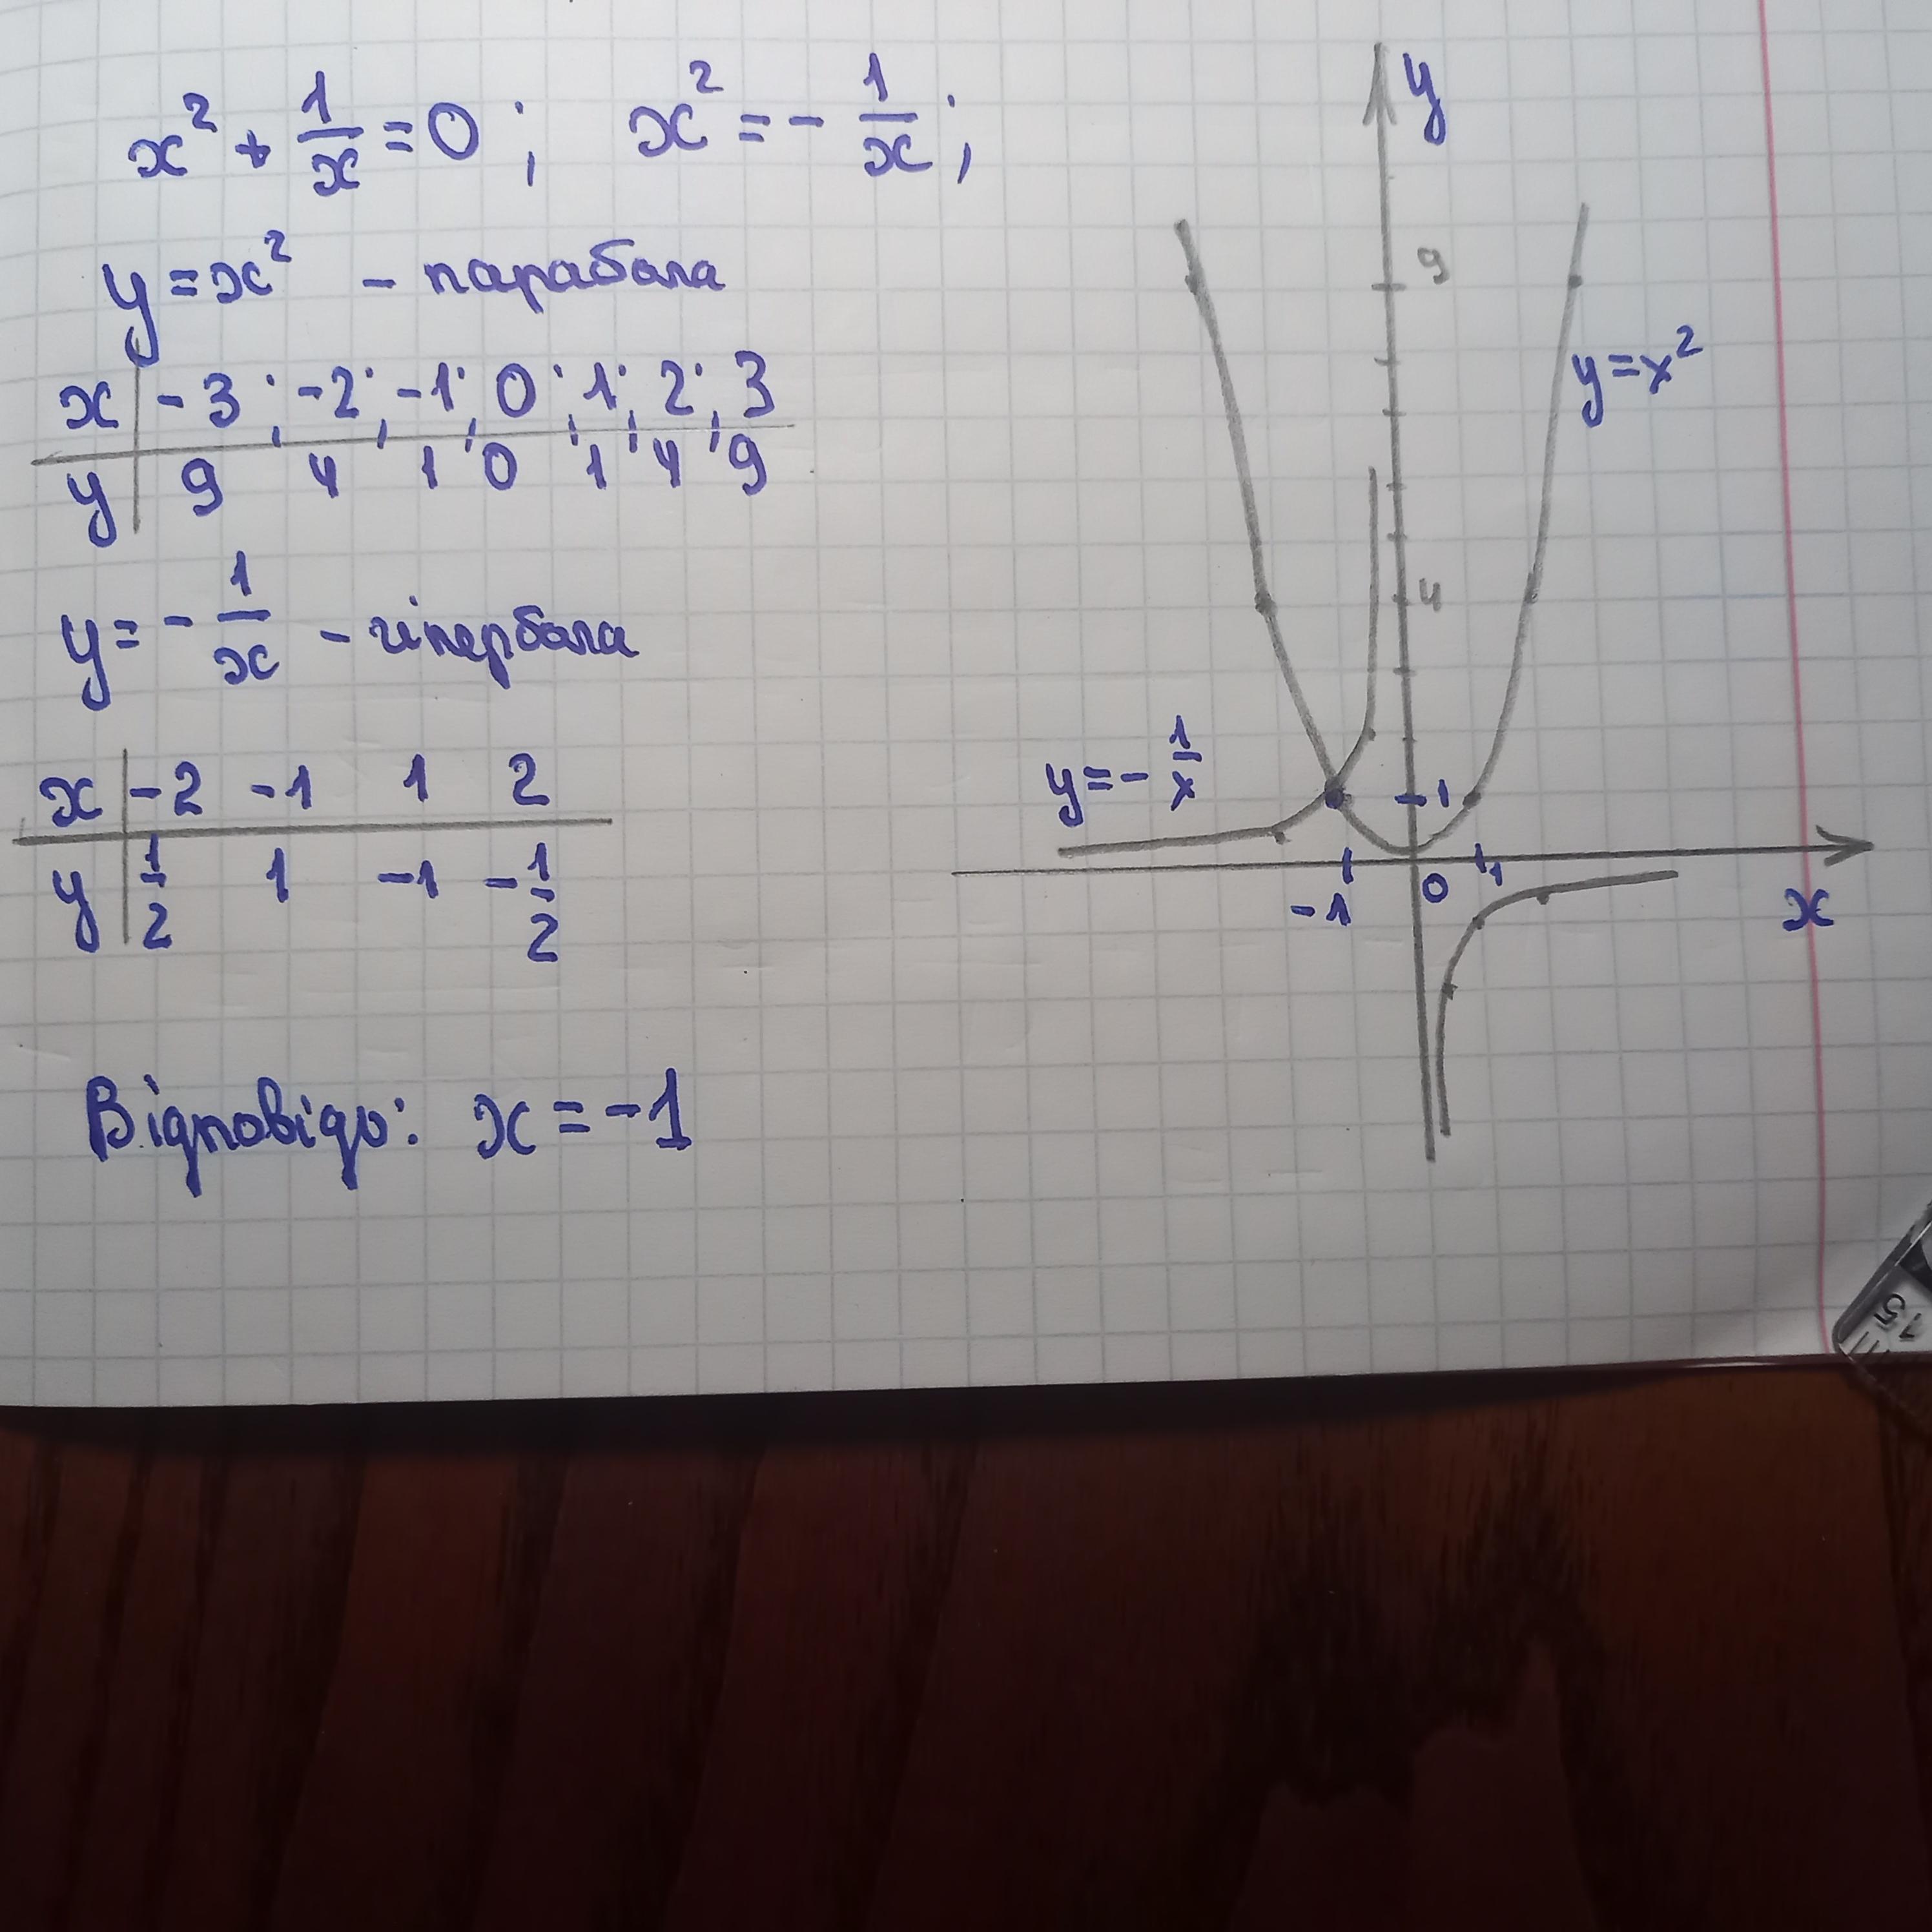 x² + 1/x = 0 ; x² = - 1/x ;
y = x² - парабола
x | -3 ; -2 ; -1 ; 0 ; 1 ; 2 ; 3
y | 9 4 1 0 1 4 9
y = - 1/x - гіпербола
x | -2 -1 1 2
y | 1/2 1 -1 - 1/2
Відповідь: x = -1
y
9
y = x²
4
y = - 1/x
1
-1 0 1
x
15